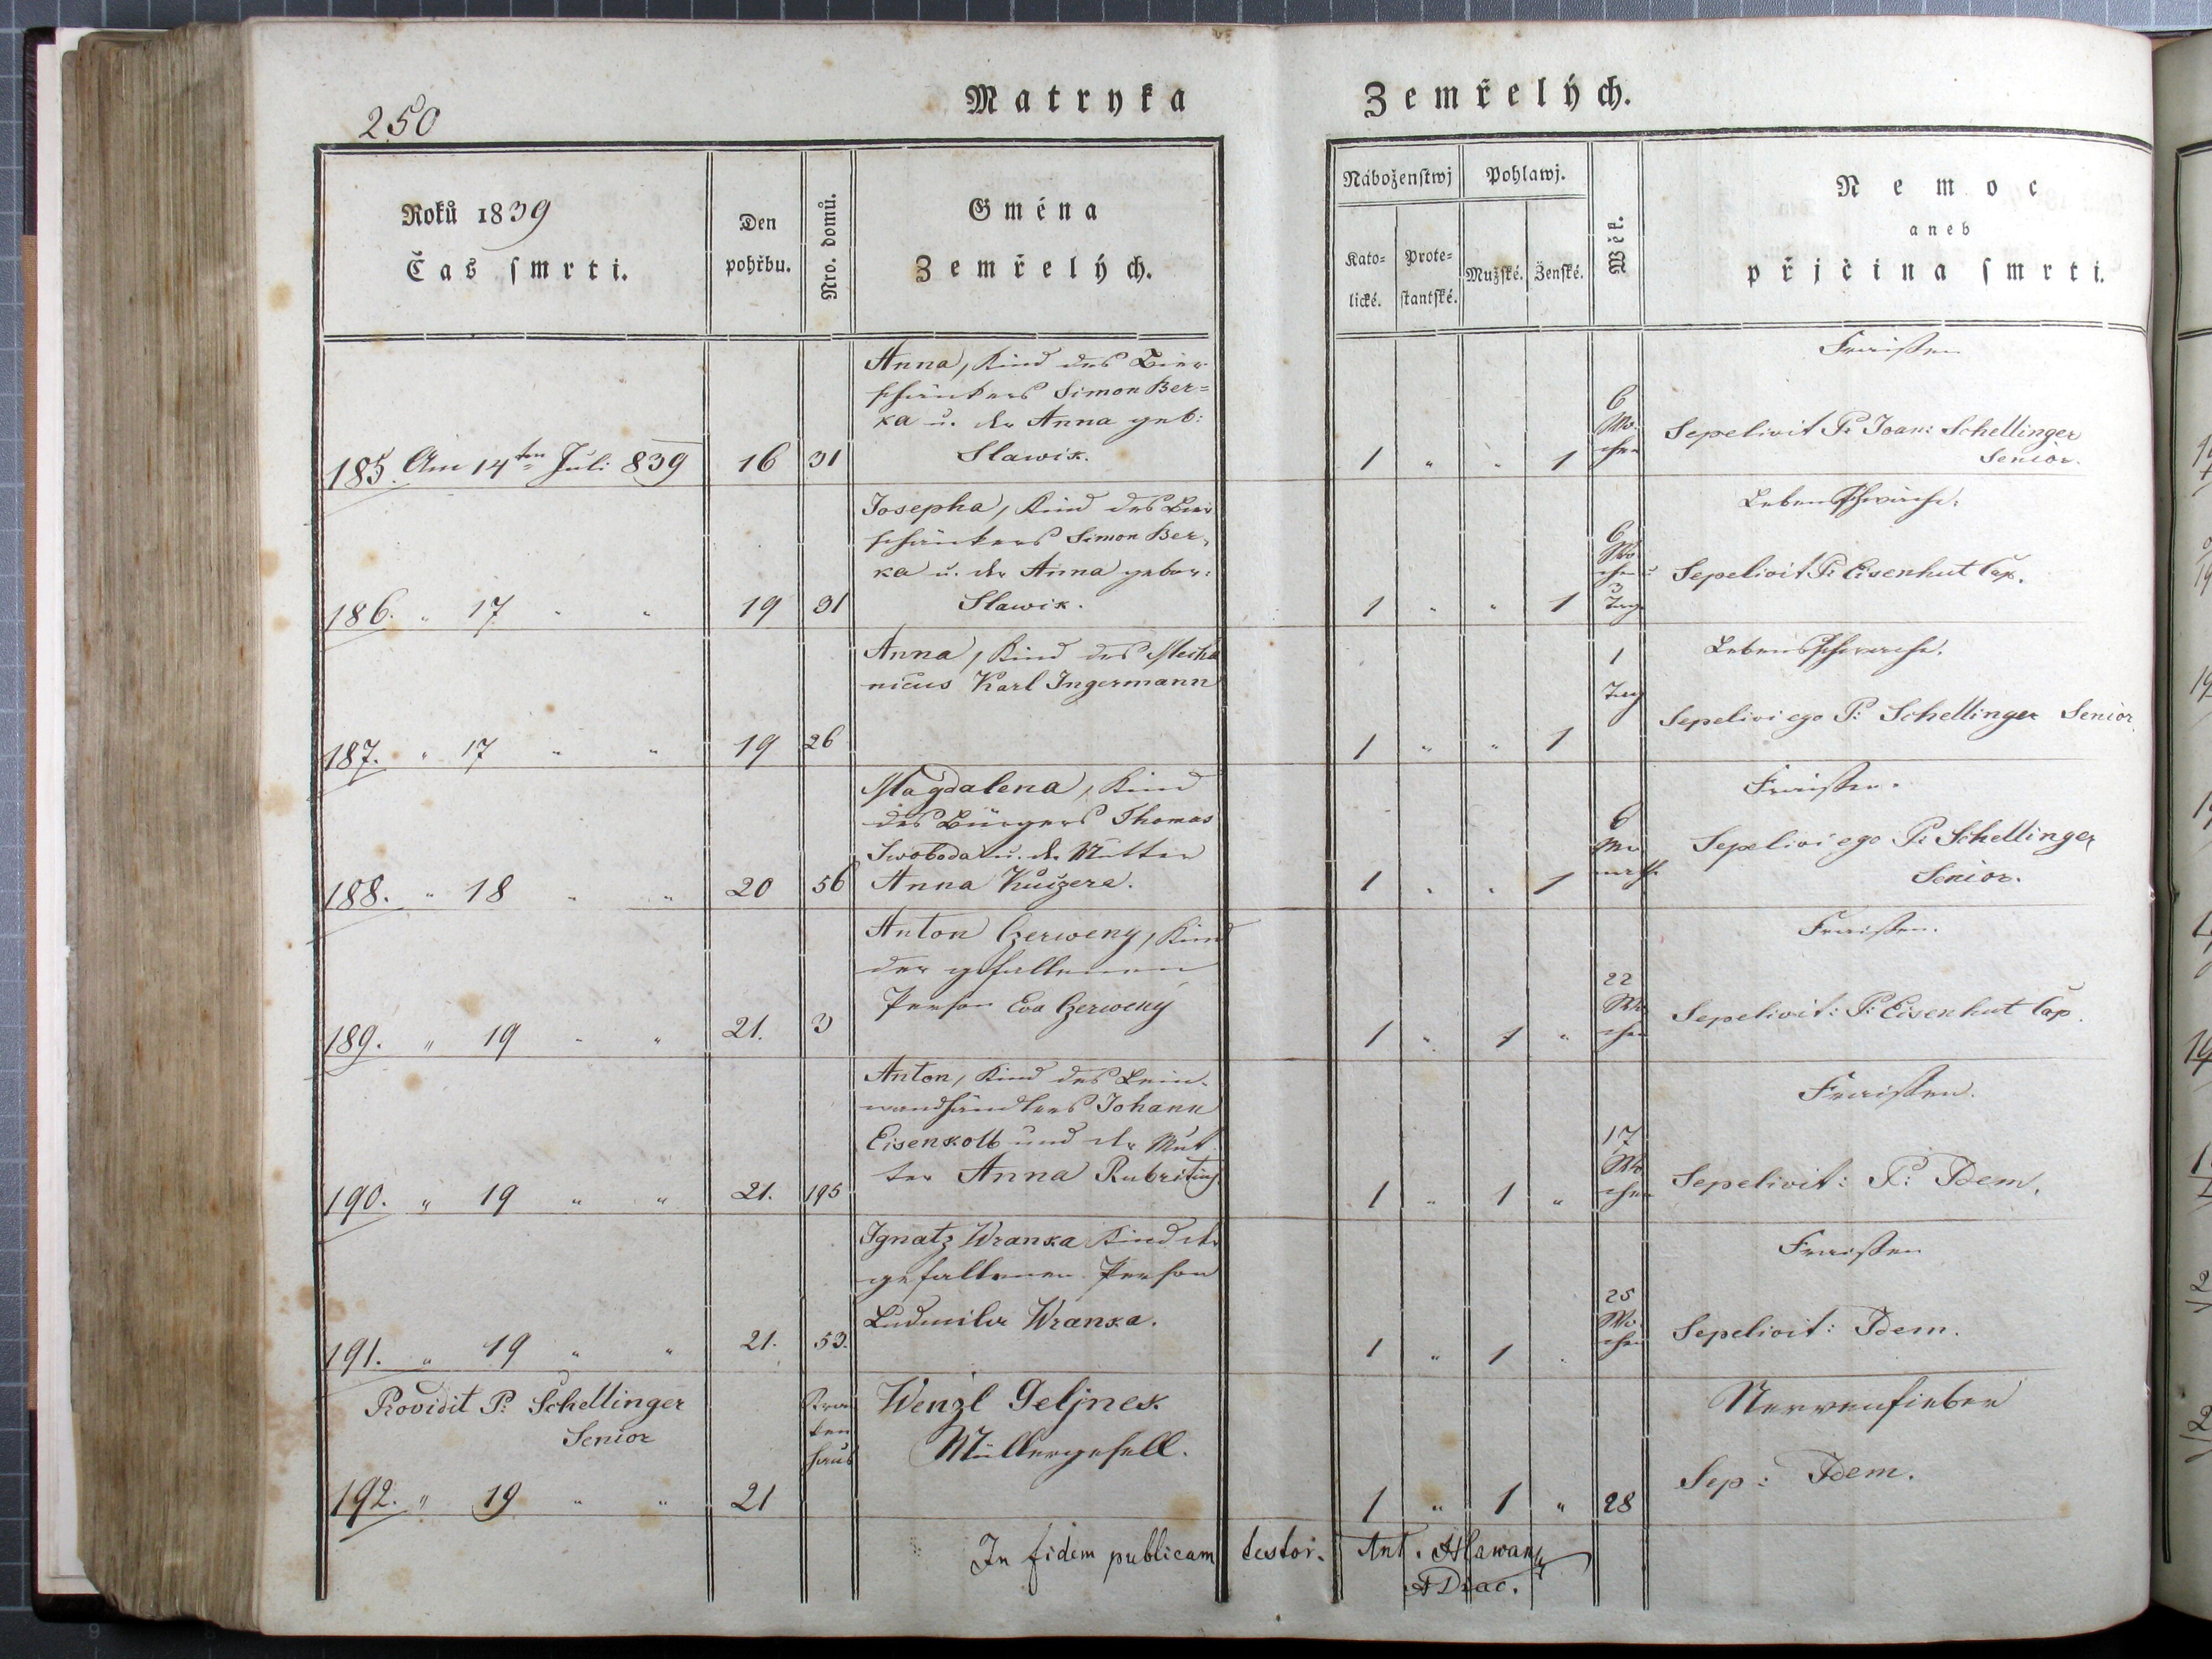 250
Matryka Zemřelých.
Roků 1839
Čas smrti.
Den
pohřbu.
Nro. domů.
Gména
Zemřelých.
Náboženstwj
Kato-
lické.
Prote-
stantské.
Pohlawj.
Mužské.
Ženské.
Wěk.
Nemoc
aneb
přjčina smrti.
185. Am 14ten Juli 839
16
31
Anna, Kind des Bier
schänkers Simon Ber=
ka u. der Anna geb:
Slawik.
1 " " 1
6
Wo-
chen
Fraisen
Sepelivit P. Joan: Schellinger
Senior.
186. " 17 " "
19
31
Josepha, Kind des Bier
schänkers Simon Ber-
ka u. der Anna gebor:
Slawik.
1 " " 1
6
Wo-
chen u
3
Tag
Lebensschwäche.
Sepelivit P: Eisenhut Cap.
187. " 17 " "
19
26
Anna, Kind des Mecha
nicus Karl Ingermann
1 " " 1
1
Tag
Lebensschwäche.
Sepelivi ego P: Schellinger Senior.
188. " 18 " "
20
56
Magdalena, Kind
des Bürgers Thomas
Swoboda u. der Mutter
Anna Kučzera.
1 " " 1
6
Mo
nath
Fraisen.
Sepelivi ego P: Schellinger
Senior.
189. " 19 " "
21.
3
Anton Czerweny, Kind
der gefallenen
Person Eva Czerweny
1 " 1 "
22
Wo
chen
Fraisen.
Sepelivit: P: Eisenhut Cap.
190. " 19 " "
21.
195
Anton, Kind des Lein-
wandhändlers Johann
Eisenkolb und der Mut
ter Anna
1 " 1 "
17
Wo
chen
Fraisen.
Sepelivit: P: Idem.
191. " 19 " "
21.
53.
Ignatz Wranka Kind der
gefallenen Person
Ludmila Wranka.
1 " 1 "
25
Wo-
chen
Fraisen
Sepelivit: Idem.
Providit P: Schellinger
Senior
192. " 19 " "
21
Kran
ken
haus
Wenzl Geljnek
Müllergesell.
1 " 1 " 28
Nervenfieber
Sep: Idem.
In fidem publicam testor. Ant. Hlawan
ADiac.